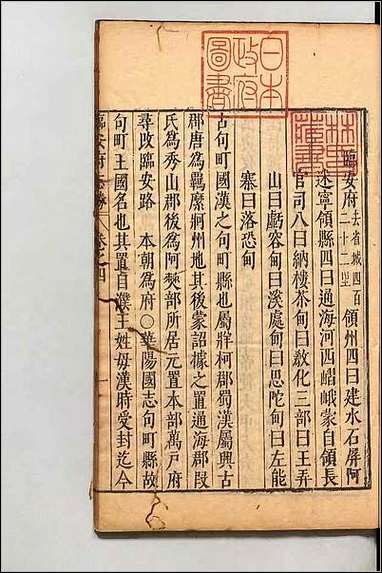 日本
政府
圖書
林氏
藏書
臨安府去省城四百二十二里領州四曰建水石屏阿
迷寧領縣四曰通海河西嶍峨蒙自領長
官司八曰納樓茶甸曰敎化三部曰王弄
山曰虧容甸曰溪處甸曰思陀甸曰左能
寨曰落恐甸
古句町國漢之句町縣也屬牂柯郡蜀漢屬興古
郡唐爲羈縻牁州地其後蒙詔據之置通海郡段
氏爲秀山郡後爲阿僰部所居元置本部萬戶府
尋改臨安路 本朝爲府○華陽國志句町縣故
句町王國名也其置自濮王姓毋漢時受封迄今
臨安府 卷之四